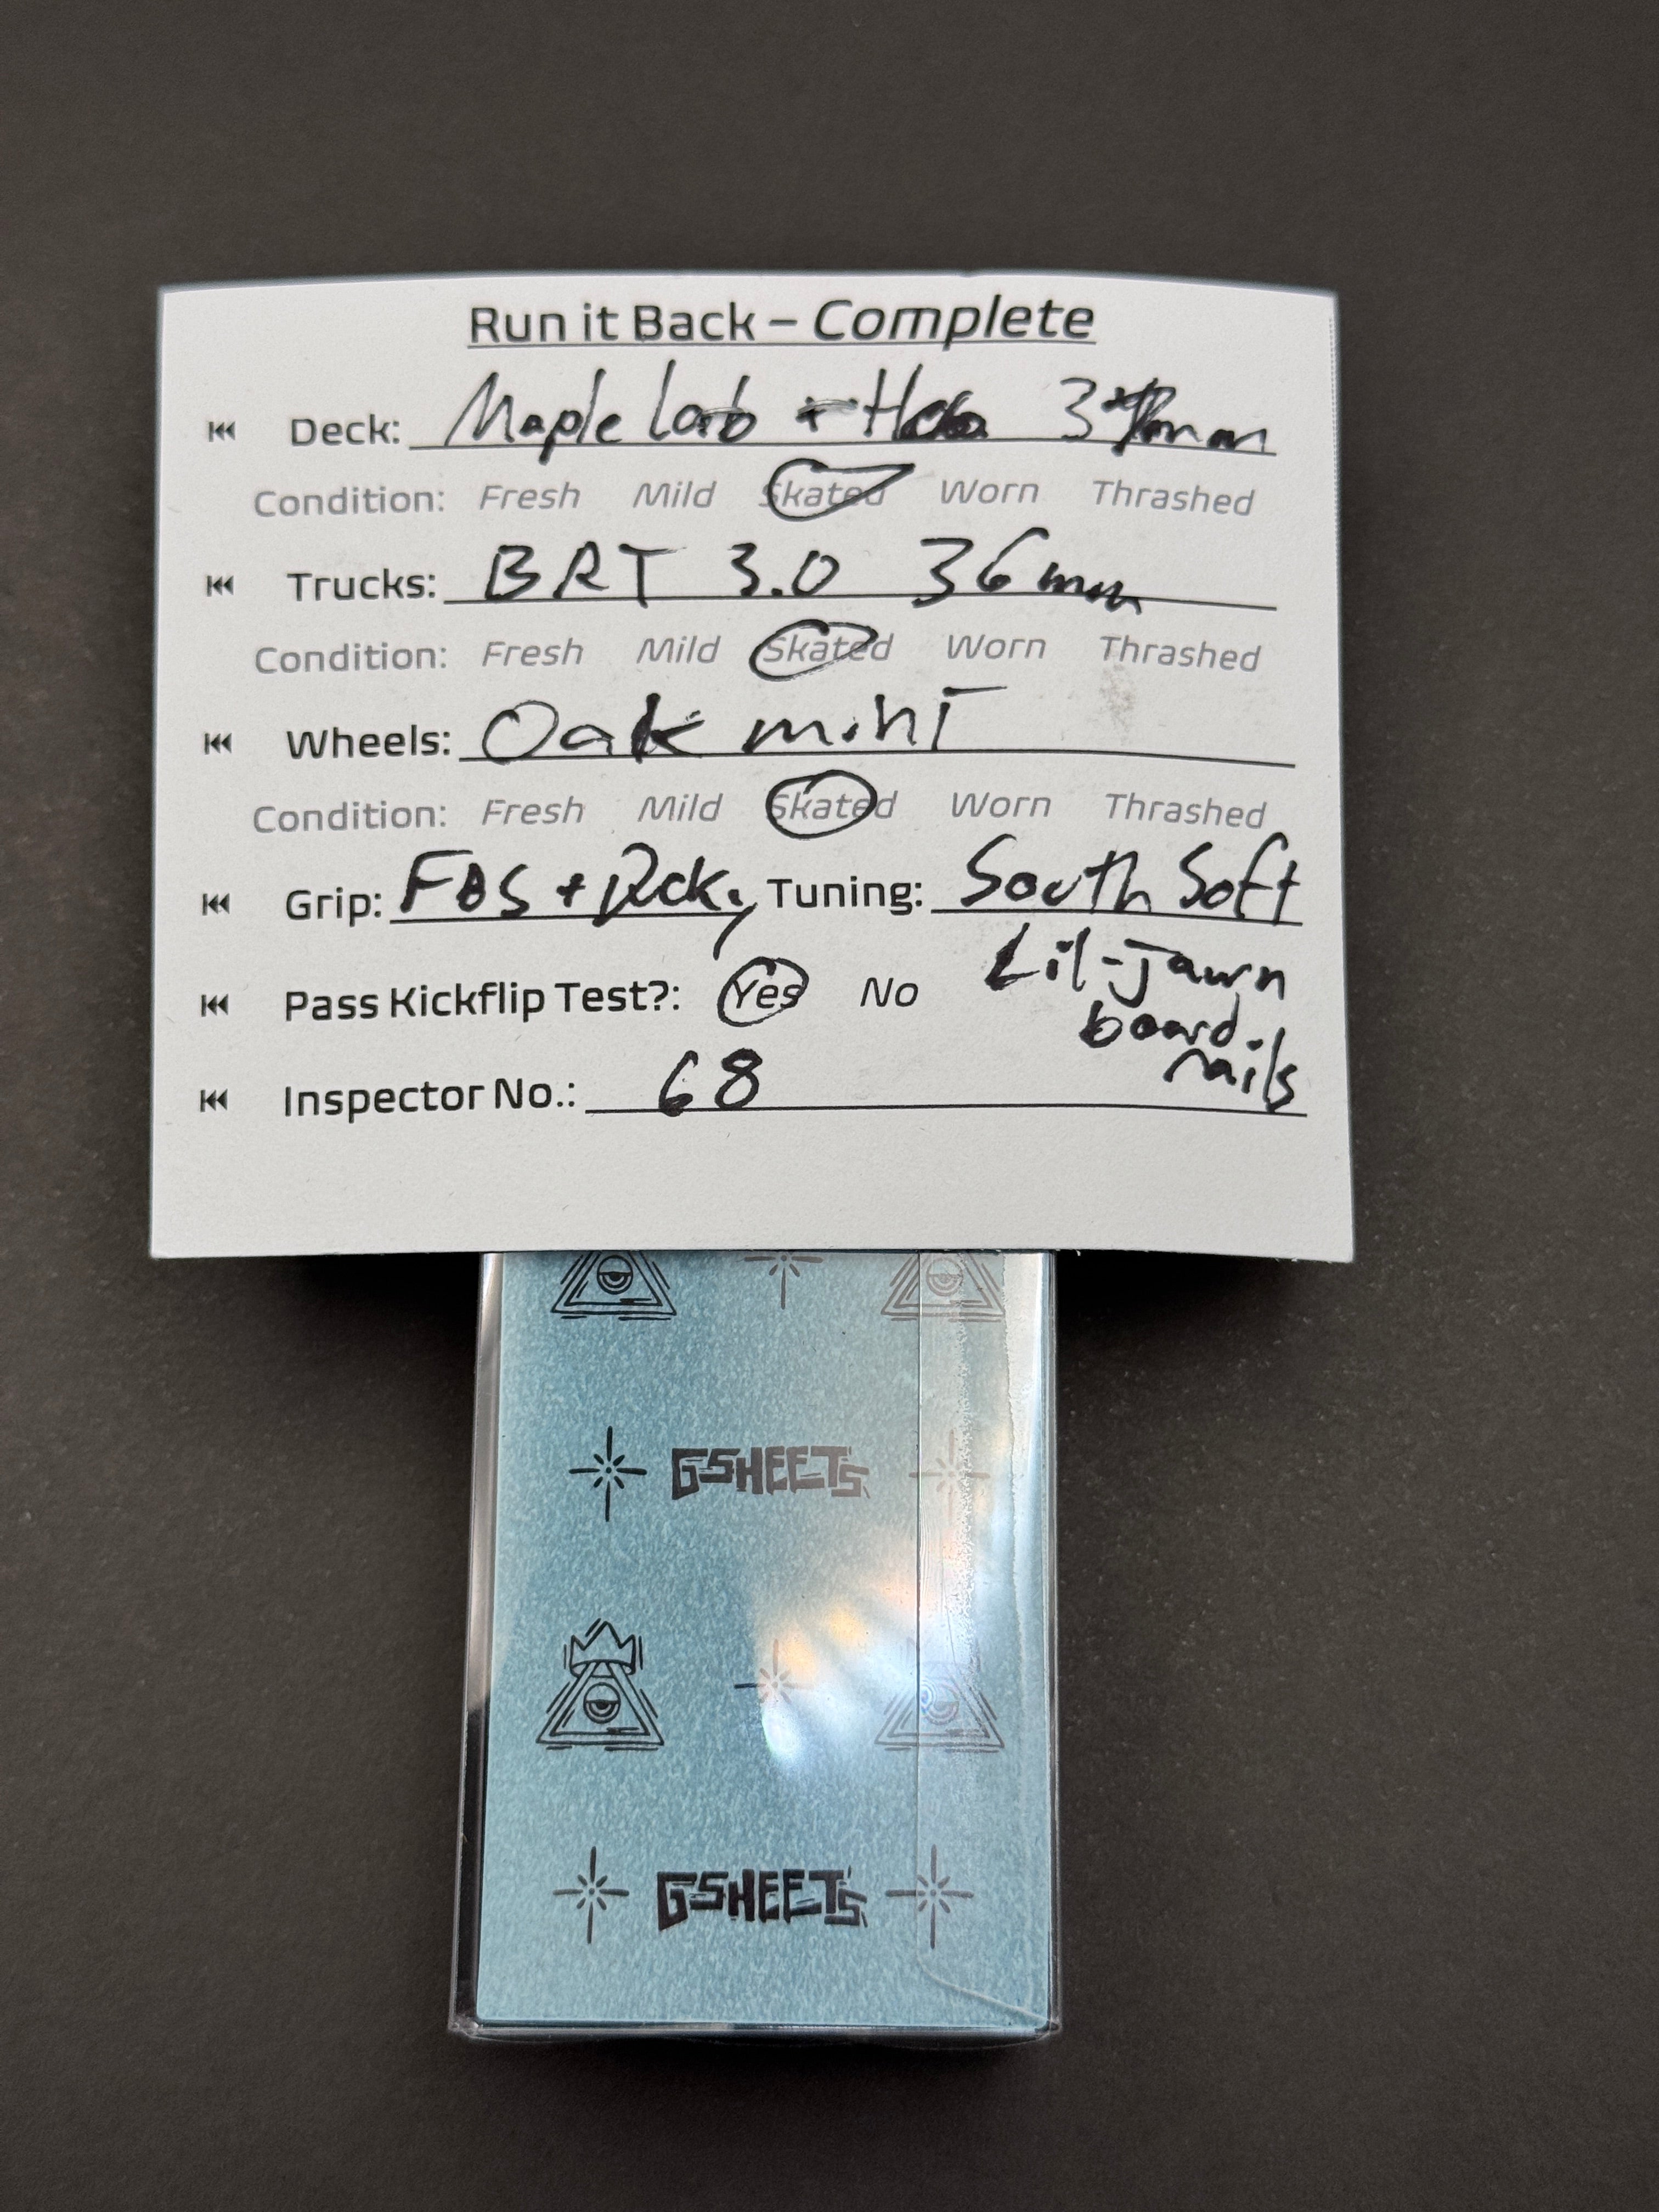 Run it Back – Complete
Deck: Maple Lab + mm
Condition: Fresh Mild Skated Worn Thrashed
Trucks: BRT 3.0 36mm
Condition: Fresh Mild Skated Worn Thrashed
Wheels: Oak mint
Condition: Fresh Mild Skated Worn Thrashed
Grip: FBS + Tuning: South Soft
Lil-Jawn
Pass Kickflip Test?: Yes No
board.
rails
Inspector No.: 68
GSHEETS
GSHEETS